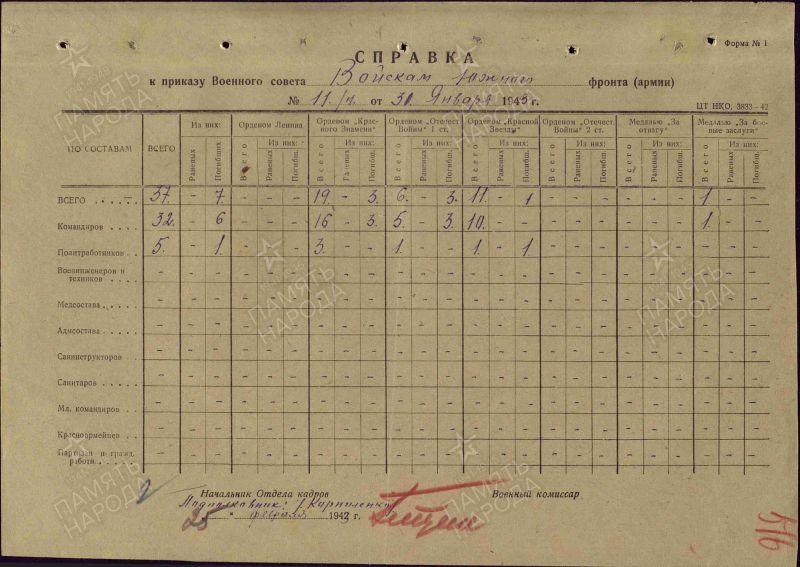 Форма № 1
СПРАВКА
к приказу Военного совета Войскам Южного фронта (армии)
№ 11/н. от 30 Января 1943 г.
ЦТ НКО, 3833—42
ПО СОСТАВАМ ВСЕГО Из них: Орденом Ленина Орденом „Красного Знамени“ Орденом „Отечест. Войны“ 1 ст. Орденом „Красной Звезды“ Орденом „Отечест. Войны“ 2 ст. Медалью „За отвагу“ Медалью „За боевые заслуги“
Раненых Погибших Всего Из них: Раненых Погибш. Всего Из них: Раненых Погибш. Всего Из них: Раненых Погибш. Всего Из них: Раненых Погибш. Всего Из них: Раненых Погибш. Всего Из них: Раненых Погибш. Всего Из них: Раненых Погибш.
ВСЕГО . . . . . 37. - 7. - - - 19 - 3. 6. - 3. 11. - 1 - - - - - - 1. - -
Командиров . . . 32. - 6 - - - 16 - 3. 5. - 3. 10. - - - - - - - - 1. - -
Политработников . 5. - 1. - - - 3. - - 1. - - 1 - 1 - - - - - - - - -
Военинженеров и техников . . . . - - - - - - - - - - - - - - - - - - - - - - - -
Медсостава . . . - - - - - - - - - - - - - - - - - - - - - - - -
Админсостава . . . - - - - - - - - - - - - - - - - - - - - - - - -
Санинструкторов . . - - - - - - - - - - - - - - - - - - - - - - - -
Санитаров . . . - - - - - - - - - - - - - - - - - - - - - - - -
Мл. командиров . . - - - - - - - - - - - - - - - - - - - - - - - -
Красноармейцев . . . - - - - - - - - - - - - - - - - - - - - - - - -
Партизан и гражд. работн. . . . - - - - - - - - - - - - - - - - - - - - - - - -
Начальник Отдела кадров Военный комиссар
Подполковник: /Карпиленко
25 „ февраля 1943 г.
ПАМЯТЬ НАРОДА